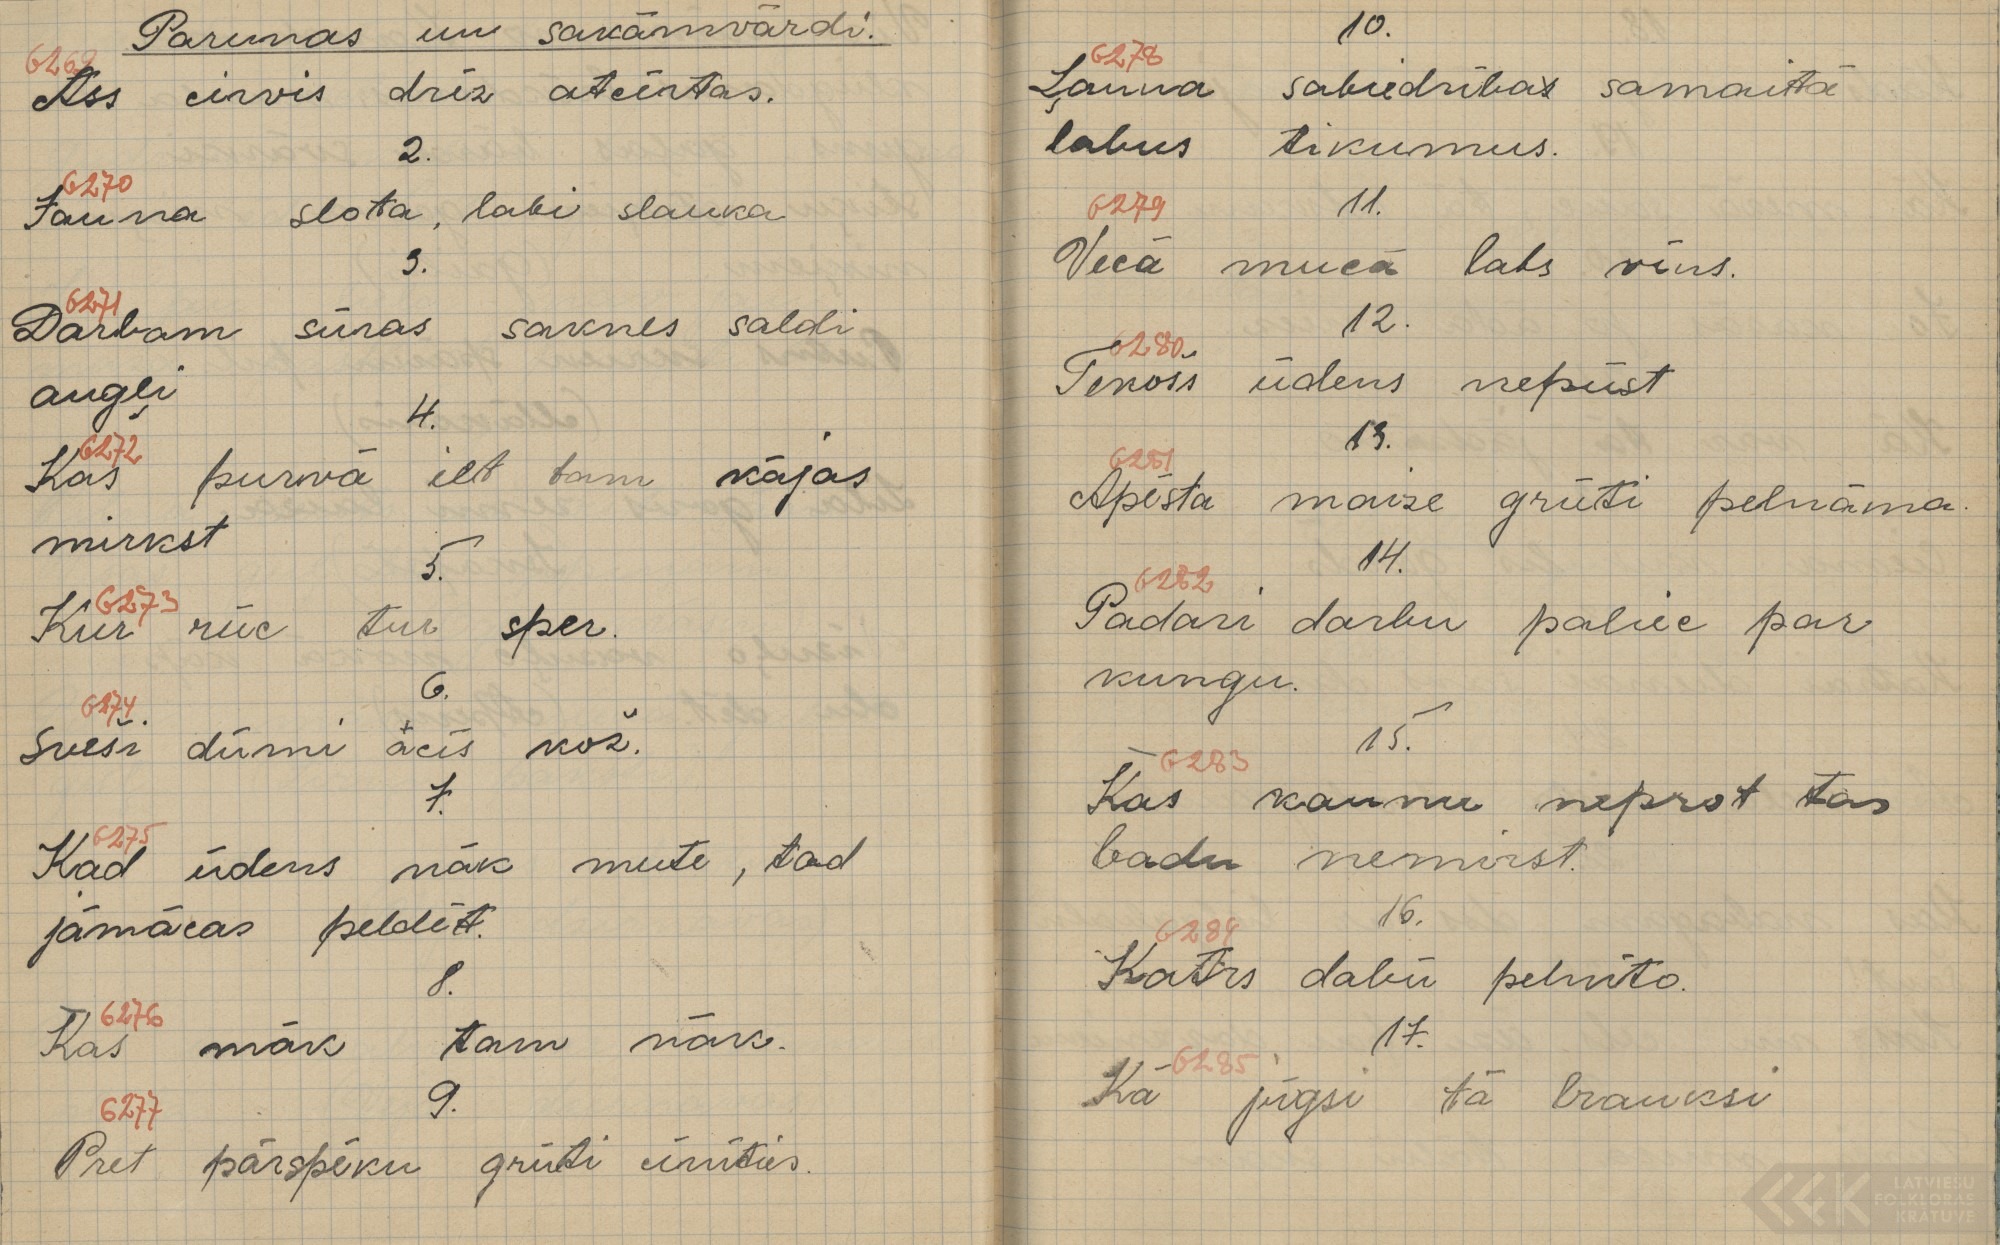 Parunas un sakāmvārdi.
6269
Ass cirvis drīz atcērtas.
2.
6270
Jauna slota, labi slauka
3.
6271
Darbam sūras saknes saldi
augļi
4.
6272
Kas purvā iet tam kājas
mirkst
5.
6273
Kur rūc tur sper.
6.
6274
Sveši dūmi acīs kož.
7.
6275
Kad ūdens nāk mute, tad
jāmācas peldēt.
8.
6276
Kas māk tam nāk.
9.
6277
Pret pārspēku grūti cīnīties.
10.
6278
Ļauna sabiedrības samaitā
labus tikumus.
11.
6279
Vecā mucā labs vīns.
12.
6280
Tekošs ūdens nepūst
13.
6281
Apēsta maize grūti pelnāma.
14.
6282
Padari darbu paliec par
kungu.
15.
6283
Kas kaunu neprot tas
badu nemirst.
16.
6284
Katrs dabū pelnīto.
17.
6285
Kā jūgsi tā brauksi
LATVIEŠU
FOLKLORAS
KRĀTUVE